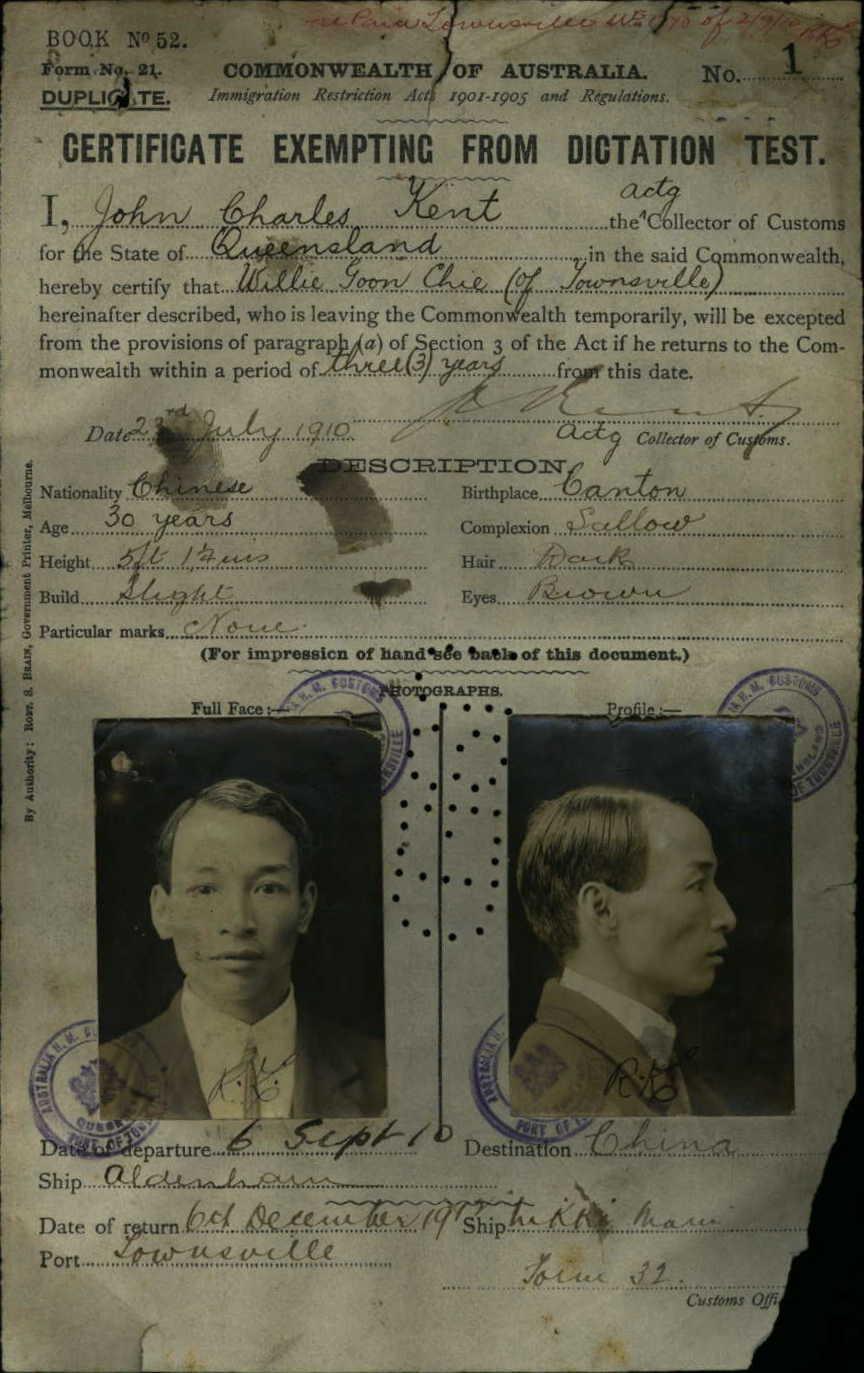 BOOK Nº 52.
Form No. 21.
DUPLICATE.
COMMONWEALTH OF AUSTRALIA.
No. 1
Immigration Restriction Acts 1901-1905 and Regulations.
CERTIFICATE EXEMPTING FROM DICTATION TEST.
I, John Charles Kent the Actg Collector of Customs
for the State of Queensland in the said Commonwealth,
hereby certify that Willie Goon Chie (of Townsville)
hereinafter described, who is leaving the Commonwealth temporarily, will be excepted
from the provisions of paragraph (a) of Section 3 of the Act if he returns to the Com-
monwealth within a period of three (3) years from this date.
Date 23rd July 1910
Actg Collector of Customs.
DESCRIPTION.
Nationality Chinese
Birthplace Canton
Age 30 years
Complexion Sallow
Height
Hair Dark
Build Slight
Eyes Brown
Particular marks None
(For impression of hand see back of this document.)
PHOTOGRAPHS.
Full Face :—
Profile :—
By Authority: ROBT. S. BRAIN, Government Printer, Melbourne.
Date of departure 6 Sept 10
Destination China
Ship Aldenham
Date of return 6th December
Ship Nikko Maru
Port Townsville
Form 32.
Customs Offi